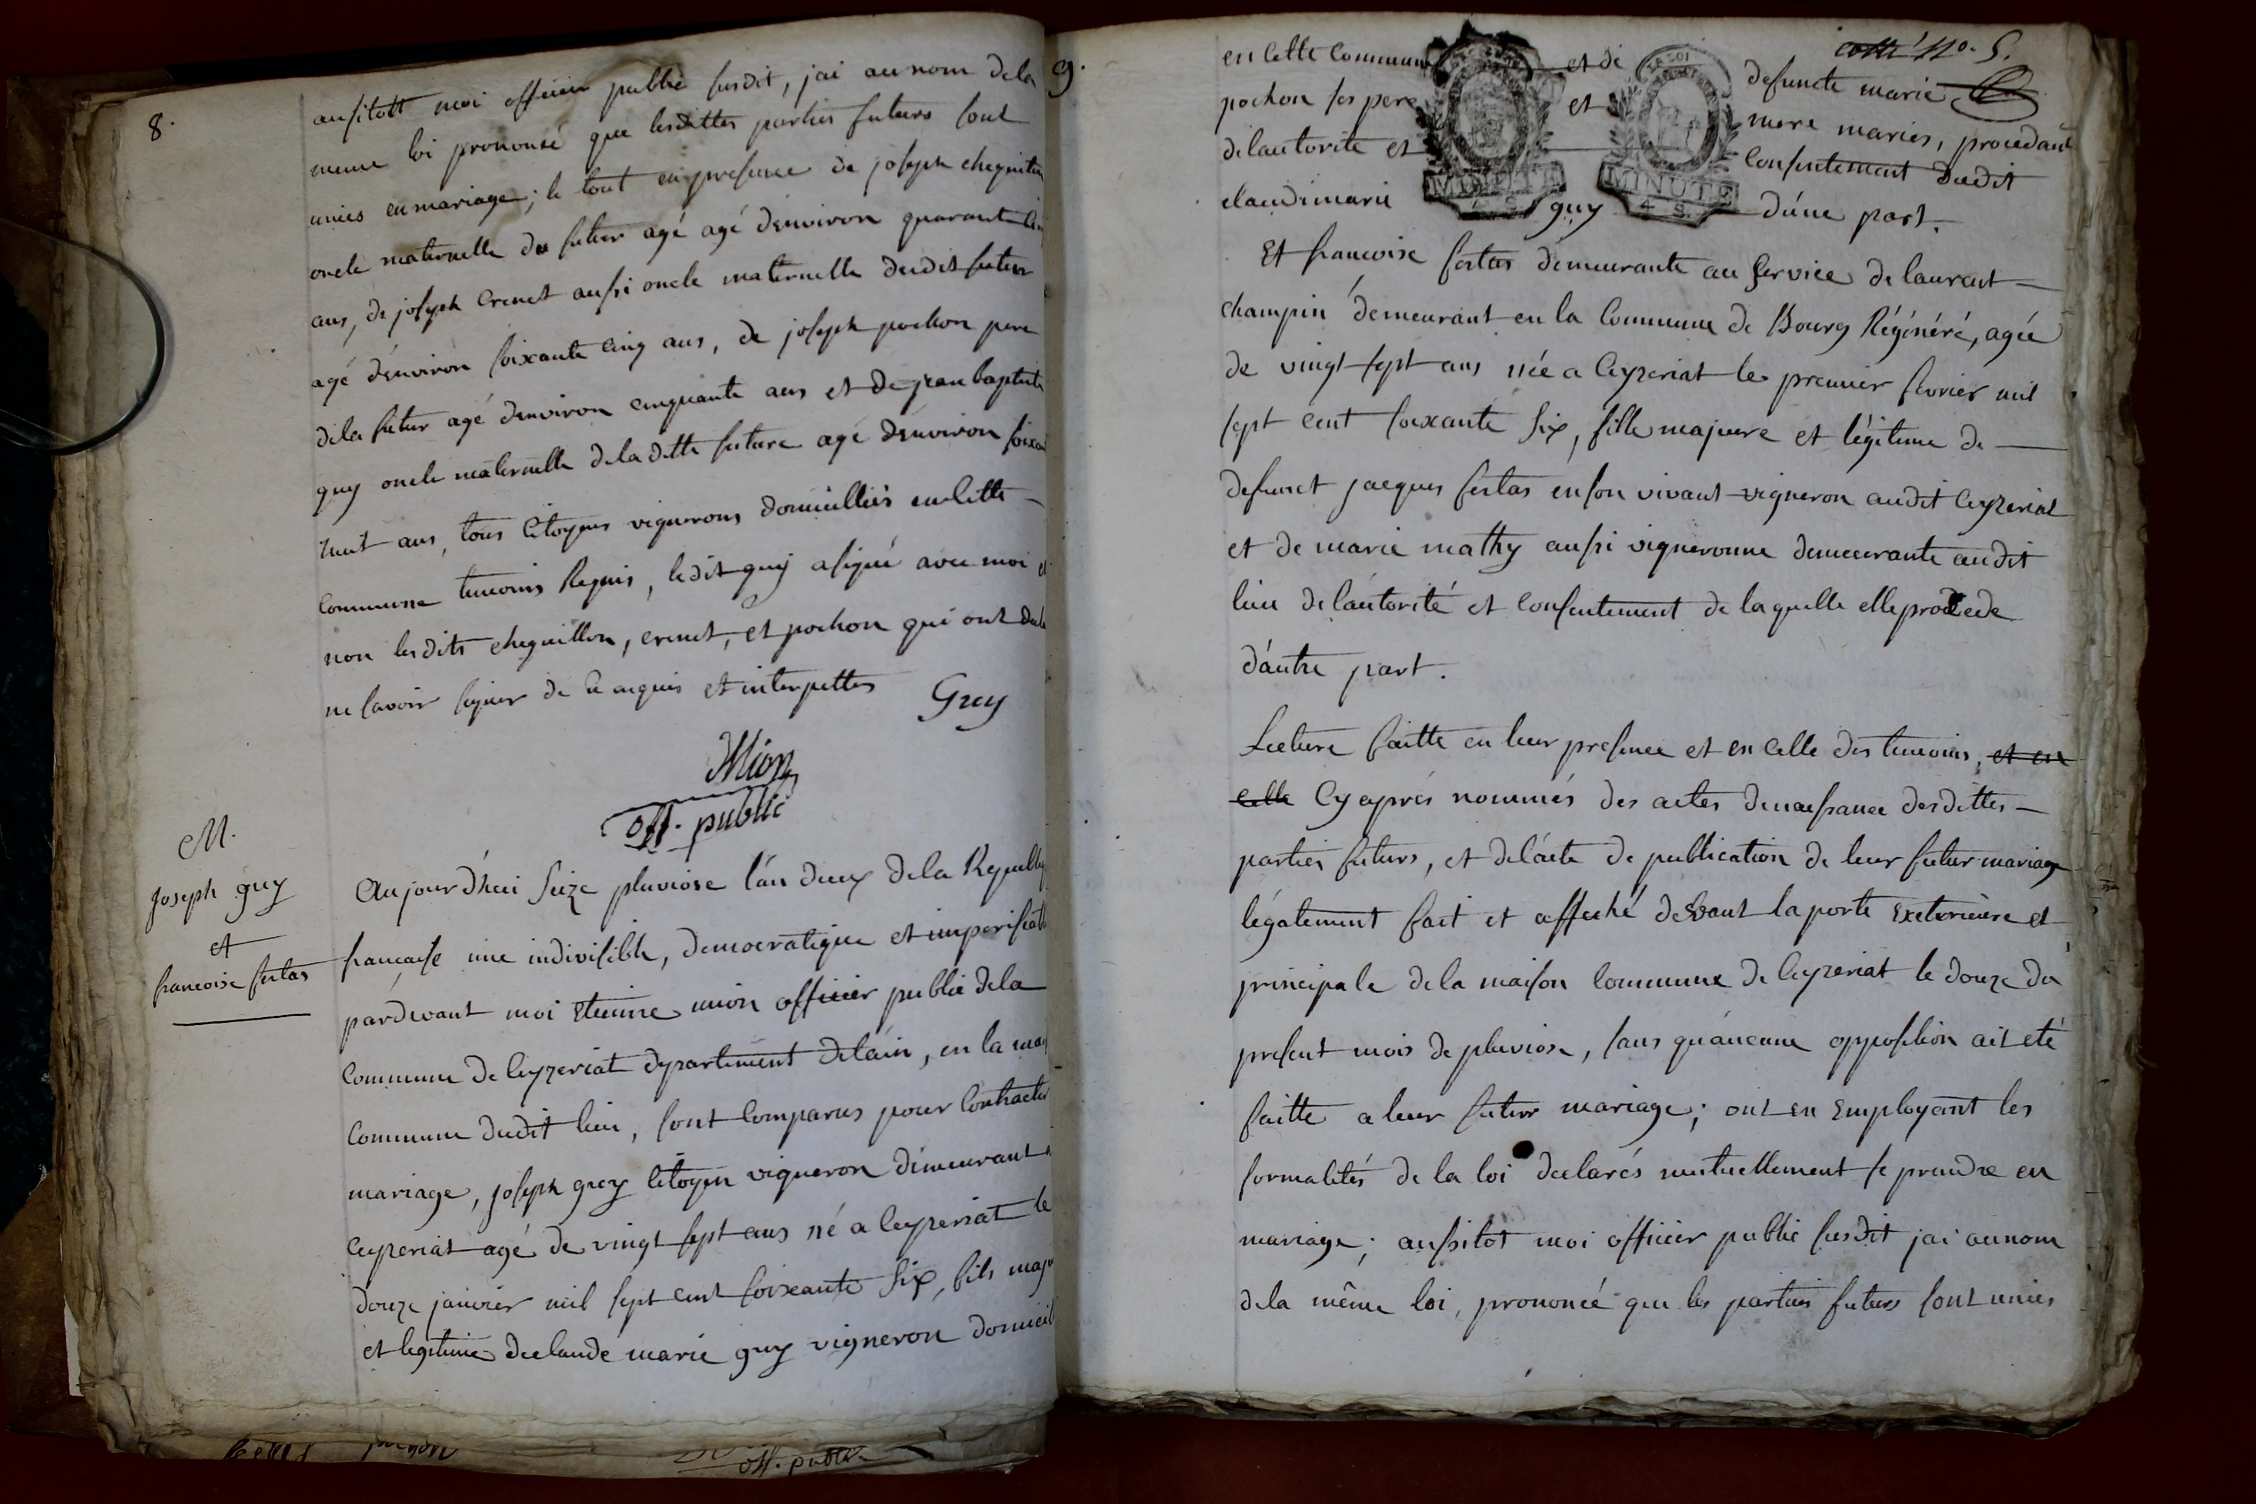 8.
ausitott moi officier public susdit, jai au nom de la
meme loi prononsé que lesdittes parties futurs sont
unies en mariage; le tout en presence de joseph cheguillon
oncle maternelle du futur agé agé d'environ quarante
ans, de joseph Crenet aussi oncle maternelle dudit futur
agé d'environ soixante cinq ans, de joseph pochon pere
de la futur agé d'environ cinquante ans et de jean baptiste
guy oncle maternelle de la ditte future agé d'environ
huit ans, tous Citoyens vignerons domicilliés en cette
Commune temoins Requis, ledit guy a signé avec moi et
non lesdits cheguillon, crenet, et pochon qui ont
ne savoir signer de ce enquis et interpettes
Guy
Mion
off. public
M.
Joseph guy
et
francoise sertas
Aujourd'hui Seize pluviose l'an deux de la Republ
francaise une indivisible, democratique et imperissabl
pardevant moi Etienne mion officier public de la
Commune de Ceyzeriat departement de lain, en la mai
Commune dudit lieu, sont Comparus pour Contracter
mariage, joseph guy Citoyen vigneron demeurant a
Ceyzeriat agé de vingt sept ans né a Ceyzeriat le
douze janvier mil sept cent soixante six, fils maj
et legitime de claude marie guy vigneron domicil
off. public
9.
cotté No. 5.
en Cette Commune et de defuncte marie
pochon ses pere et mere mariés, procedant
de lautorité et Consentement dudit
claude marie guy d'une part.
Et francoise sertas demeurante au service de laurent
champin demeurant en la Commune de Bourg Régénéré, agée
de vingt sept ans née a Ceyzeriat le premier fevrier mil
sept cent soixante six, fille majeure et légitime de
defunct jacques sertas en son vivant vigneron audit Ceyzeriat
et de marie mathy aussi vigneronne demeurante audit
lieu de l'autorité et consentement de laquelle elle procede
d'autre part.
Lecture faitte en leur presence et en celle des temoins, et en
celle Cy après nommés des actes de naissance desdittes
parties futurs, et de l'acte de publication de leur futur mariage
légalement fait et affeché devant la porte Exeterieure et
principale de la maison Commune de Ceyzeriat le douze du
present mois de pluviose, sans qu'aucune opposition ait eté
faitte a leur futur mariage; ont en Employant les
formalités de la loi declarés mutuellement se prendre en
mariage; aussitot moi officier public susdit jai au nom
de la même loi, prononcé que les parties futurs sont unies
MINUTE
4 S.
MINUTE
4 S.